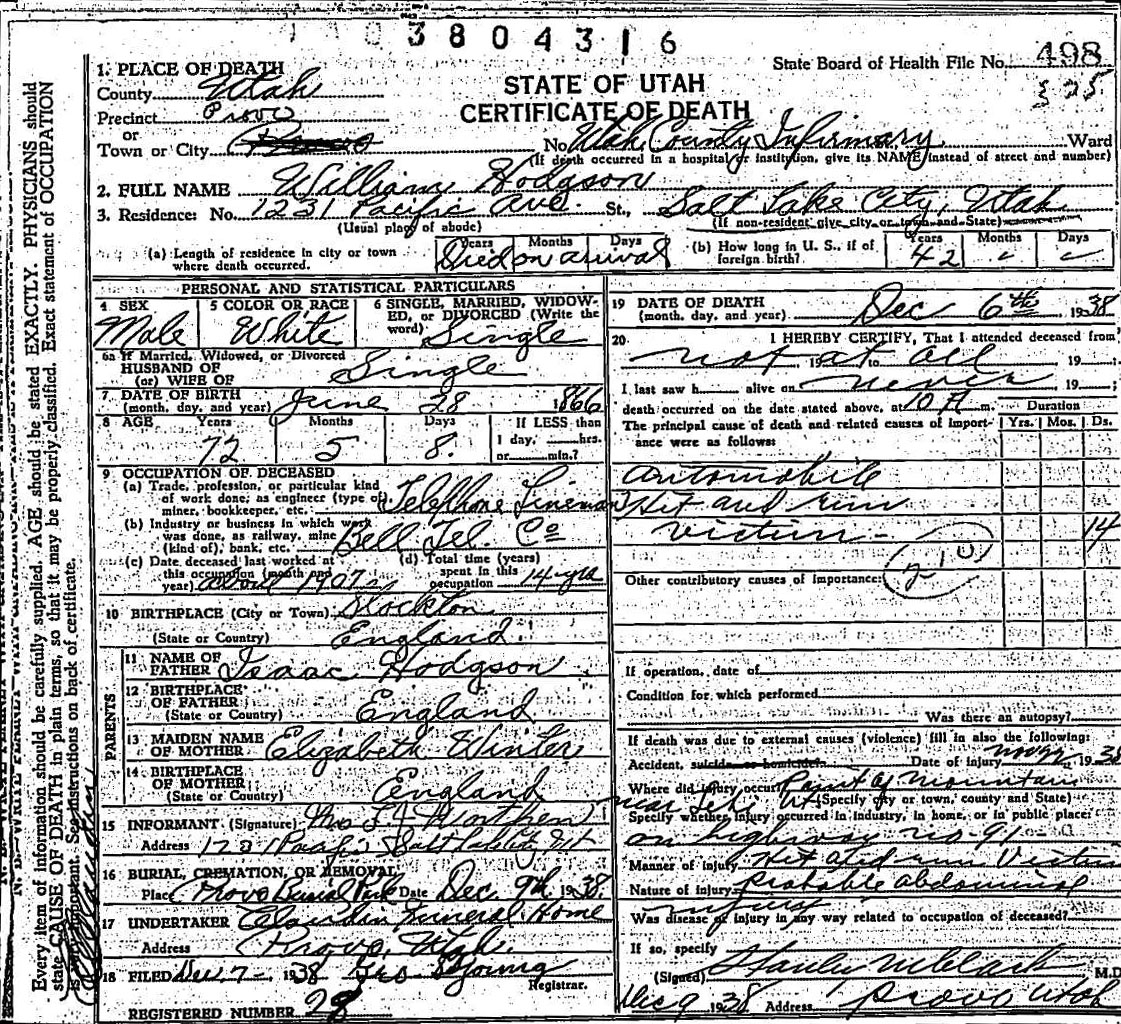 1 1 0 3 8 0 4 3 1 6
State Board of Health File No. 498
325
STATE OF UTAH
CERTIFICATE OF DEATH
1. PLACE OF DEATH
County Utah
Precinct Provo
or
Town or City Provo No. Utah County Infirmary Ward
(If death occurred in a hospital or institution, give its NAME instead of street and number)
2. FULL NAME William Hodgson
3. Residence: No. 1231 Pacific Ave. St., Salt Lake City, Utah
(Usual place of abode) (If non-resident give city or town and State)
(a) Length of residence in city or town where death occurred. Years Months Days Died on arrival
(b) How long in U. S., if of foreign birth? Years 42 Months - Days -
PERSONAL AND STATISTICAL PARTICULARS
4 SEX Male
5 COLOR OR RACE White
6 SINGLE, MARRIED, WIDOWED, or DIVORCED (Write the word) Single
6a If Married, Widowed, or Divorced
HUSBAND OF
(or) WIFE OF Single
7 DATE OF BIRTH
(month, day, and year) June 28 1866
8 AGE Years 72 Months 5 Days 8. If LESS than
1 day, hrs.
or min.?
9 OCCUPATION OF DECEASED
(a) Trade, profession, or particular kind
of work done; as engineer (type of)
miner, bookkeeper, etc. Telephone Lineman
(b) Industry or business in which work
was done, as railway, mine
(kind of), bank, etc. Bell Tel. Co
(c) Date deceased last worked at
this occupation (month and
year) about 1907
(d) Total time (years)
spent in this
occupation 14-yrs
10 BIRTHPLACE (City or Town) Stockton
(State or Country) England.
PARENTS
11 NAME OF
FATHER Isaac Hodgson
12 BIRTHPLACE
OF FATHER
(State or Country) England
13 MAIDEN NAME
OF MOTHER Elizabeth Winter
14 BIRTHPLACE
OF MOTHER
(State or Country) England
15 INFORMANT (Signature) Mrs
Address 1231 Pacific Salt Lake City Ut
16 BURIAL, CREMATION, OR REMOVAL
Place Provo Burial Park Date Dec. 9th 1938
17 UNDERTAKER Claudin Funeral Home
Address Provo, Utah.
18 FILED Dec. 7- 1938 Young
Registrar.
REGISTERED NUMBER 28
19 DATE OF DEATH
(month, day, and year) Dec 6th 1938
20 I HEREBY CERTIFY, That I attended deceased from
not at all 19 to 19
I last saw h alive on never 19 ;
death occurred on the date stated above, at 10 A m.
Duration
The principal cause of death and related causes of importance were as follows: Yrs. Mos. Ds.
Automobile
Hit and run
victim - 14
210
Other contributory causes of importance:
If operation, date of
Condition for which performed
Was there an autopsy?
If death was due to external causes (violence) fill in also the following:
Accident, suicide or homicide Date of injury 1938
Where did injury occur? Point of Mountain
near Lehi Ut (Specify city or town, county and State)
Specify whether injury occurred in industry, in home, or in public place:
on highway no-91-
Manner of injury Hit and run Victim
Nature of injury probable abdominal
injury
Was disease or injury in any way related to occupation of deceased?
If so, specify
(Signed) Stanley M Clark M.D
Dec 9 1938 Address Provo Utah
Every item of information should be carefully supplied. AGE should be stated EXACTLY. PHYSICIANS should
state CAUSE OF DEATH in plain terms, so that it may be properly classified. Exact statement of OCCUPATION
is very important. See instructions on back of certificate.